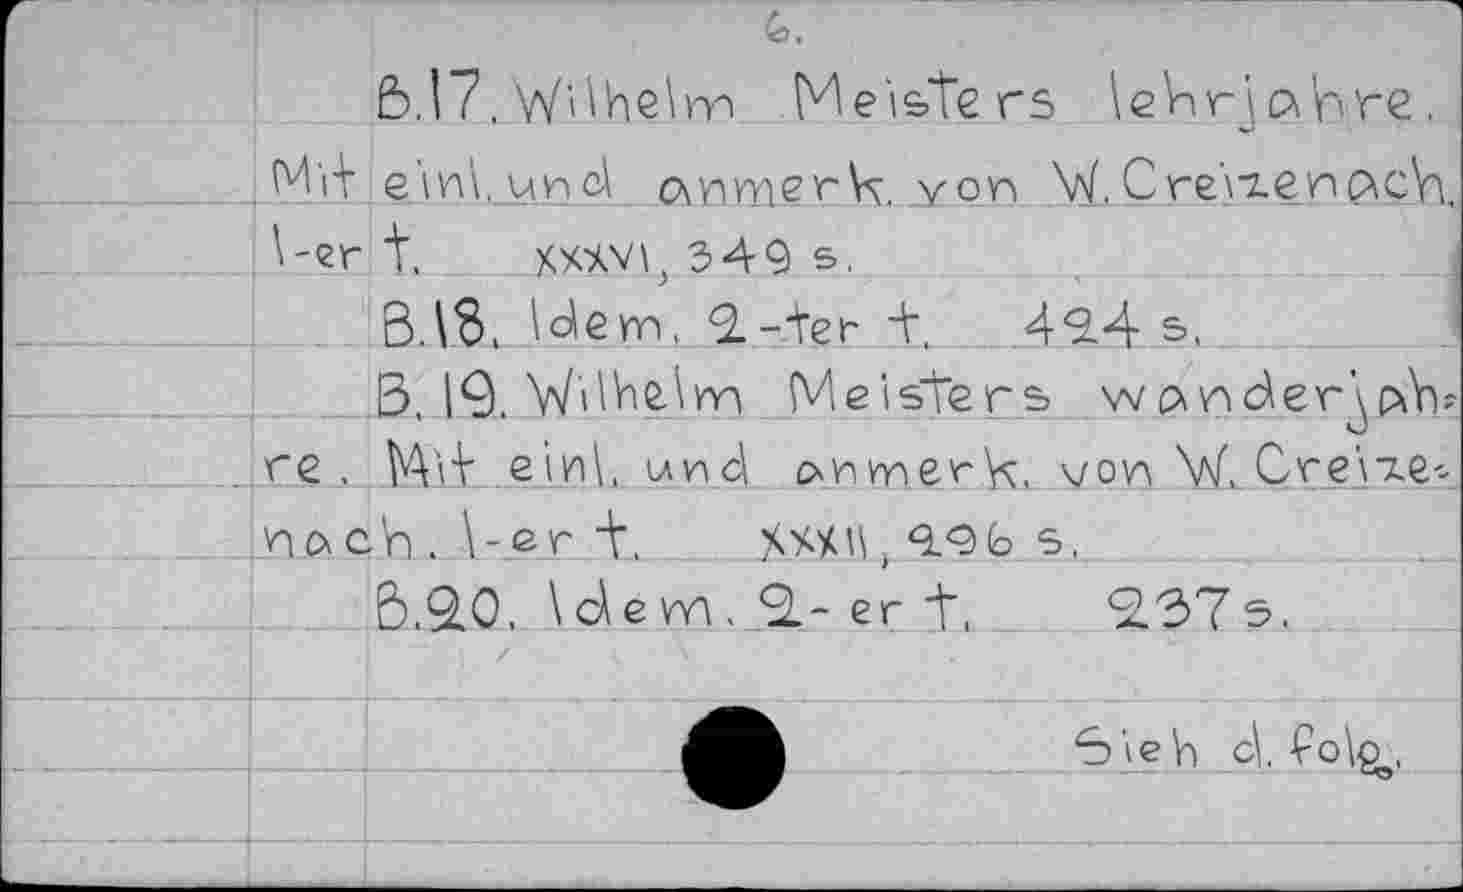 6.
B.17. Wilhelm Meisters lehrjahre.
Mit einl. und anmerk. von W. Creizenach.
1-er t. XXXVI, 349 s.
B.18. Idem. 2-ter t. 424 s.
B.19. Wilhelm Meisters wanderjah=
re. Mit einl. und anmerk. von W. Creize=
nach. 1-er t. XXXII, 296 s.
B.20. Idem. 2-er t. 237 s.
Sieh d. folg.